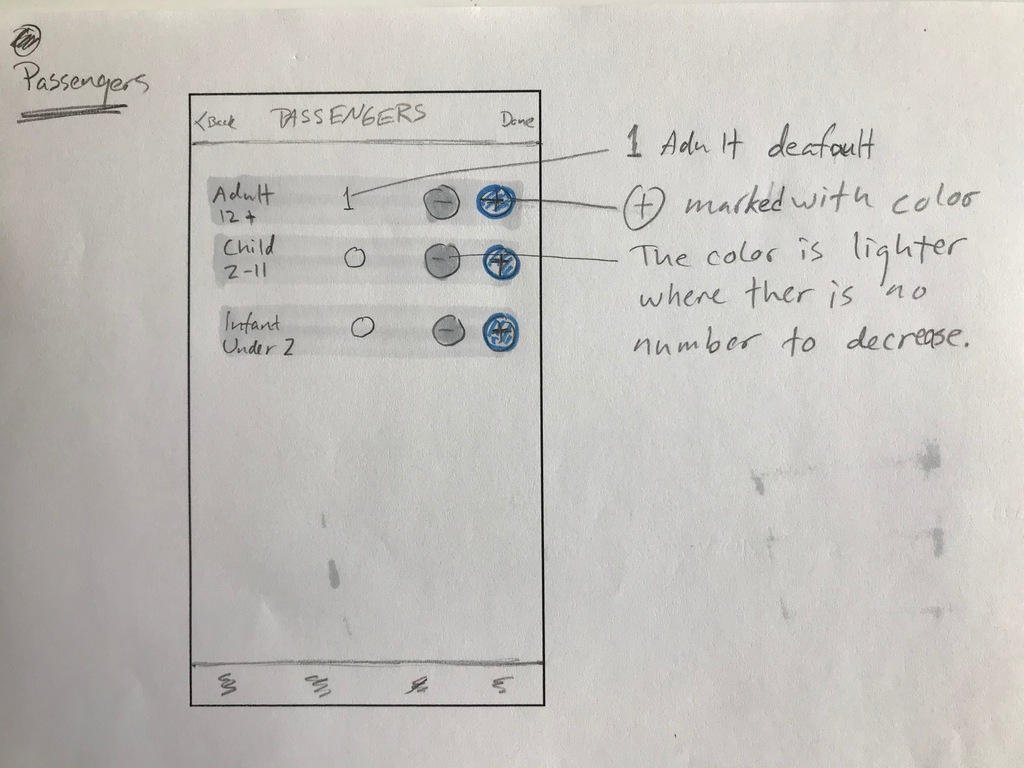 Passengers
< Back PASSENGERS Done
Adult 1 - +
12 +
Child 0 - +
2-11
Infant 0 - +
Under 2
1 Adult deafault
+ marked with color
The color is lighter
where ther is no
number to decrease.